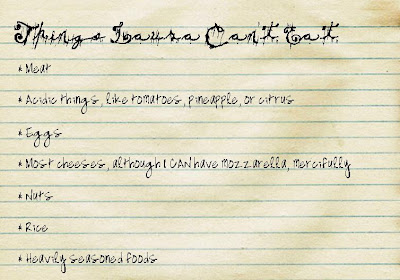 Things Laura Can't Eat
* Meat
* Acidic things, like tomatoes, pineapple, or citrus
* Eggs
* Most cheeses, although I CAN have mozzarella, mercifully
* Nuts
* Rice
* Heavily seasoned foods